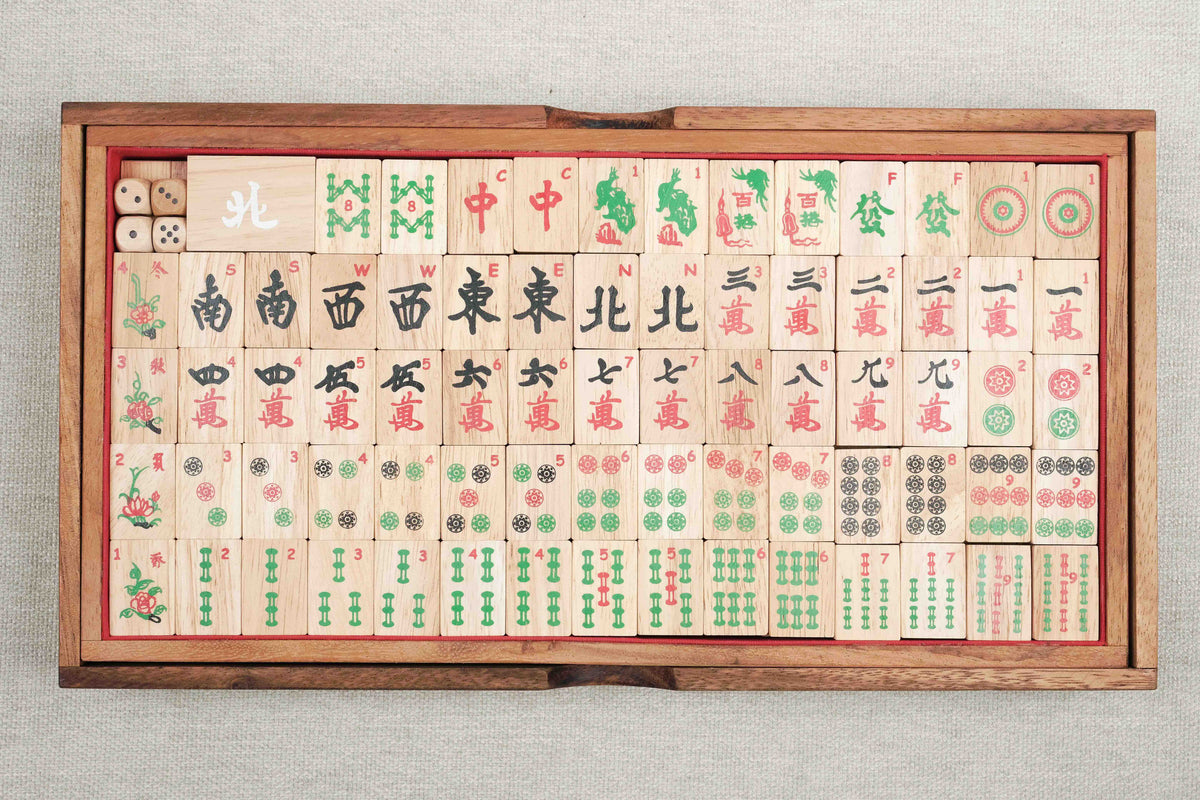 北 8 8 中 C 中 C 1 1 百搭 百搭 F 發 F 發 1 1
4 冬 S 南 S 南 W 西 W 西 E 東 E 東 N 北 N 北 三萬 3 三萬 3 二萬 2 二萬 2 一萬 1 一萬 1
3 秋 四萬 4 四萬 4 伍萬 5 伍萬 5 六萬 6 六萬 6 七萬 7 七萬 7 八萬 8 八萬 8 九萬 9 九萬 9 2 2
2 夏 3 3 4 4 5 5 6 6 7 7 8 8 9 9
1 春 2 2 3 3 4 4 5 5 6 6 7 7 9 9